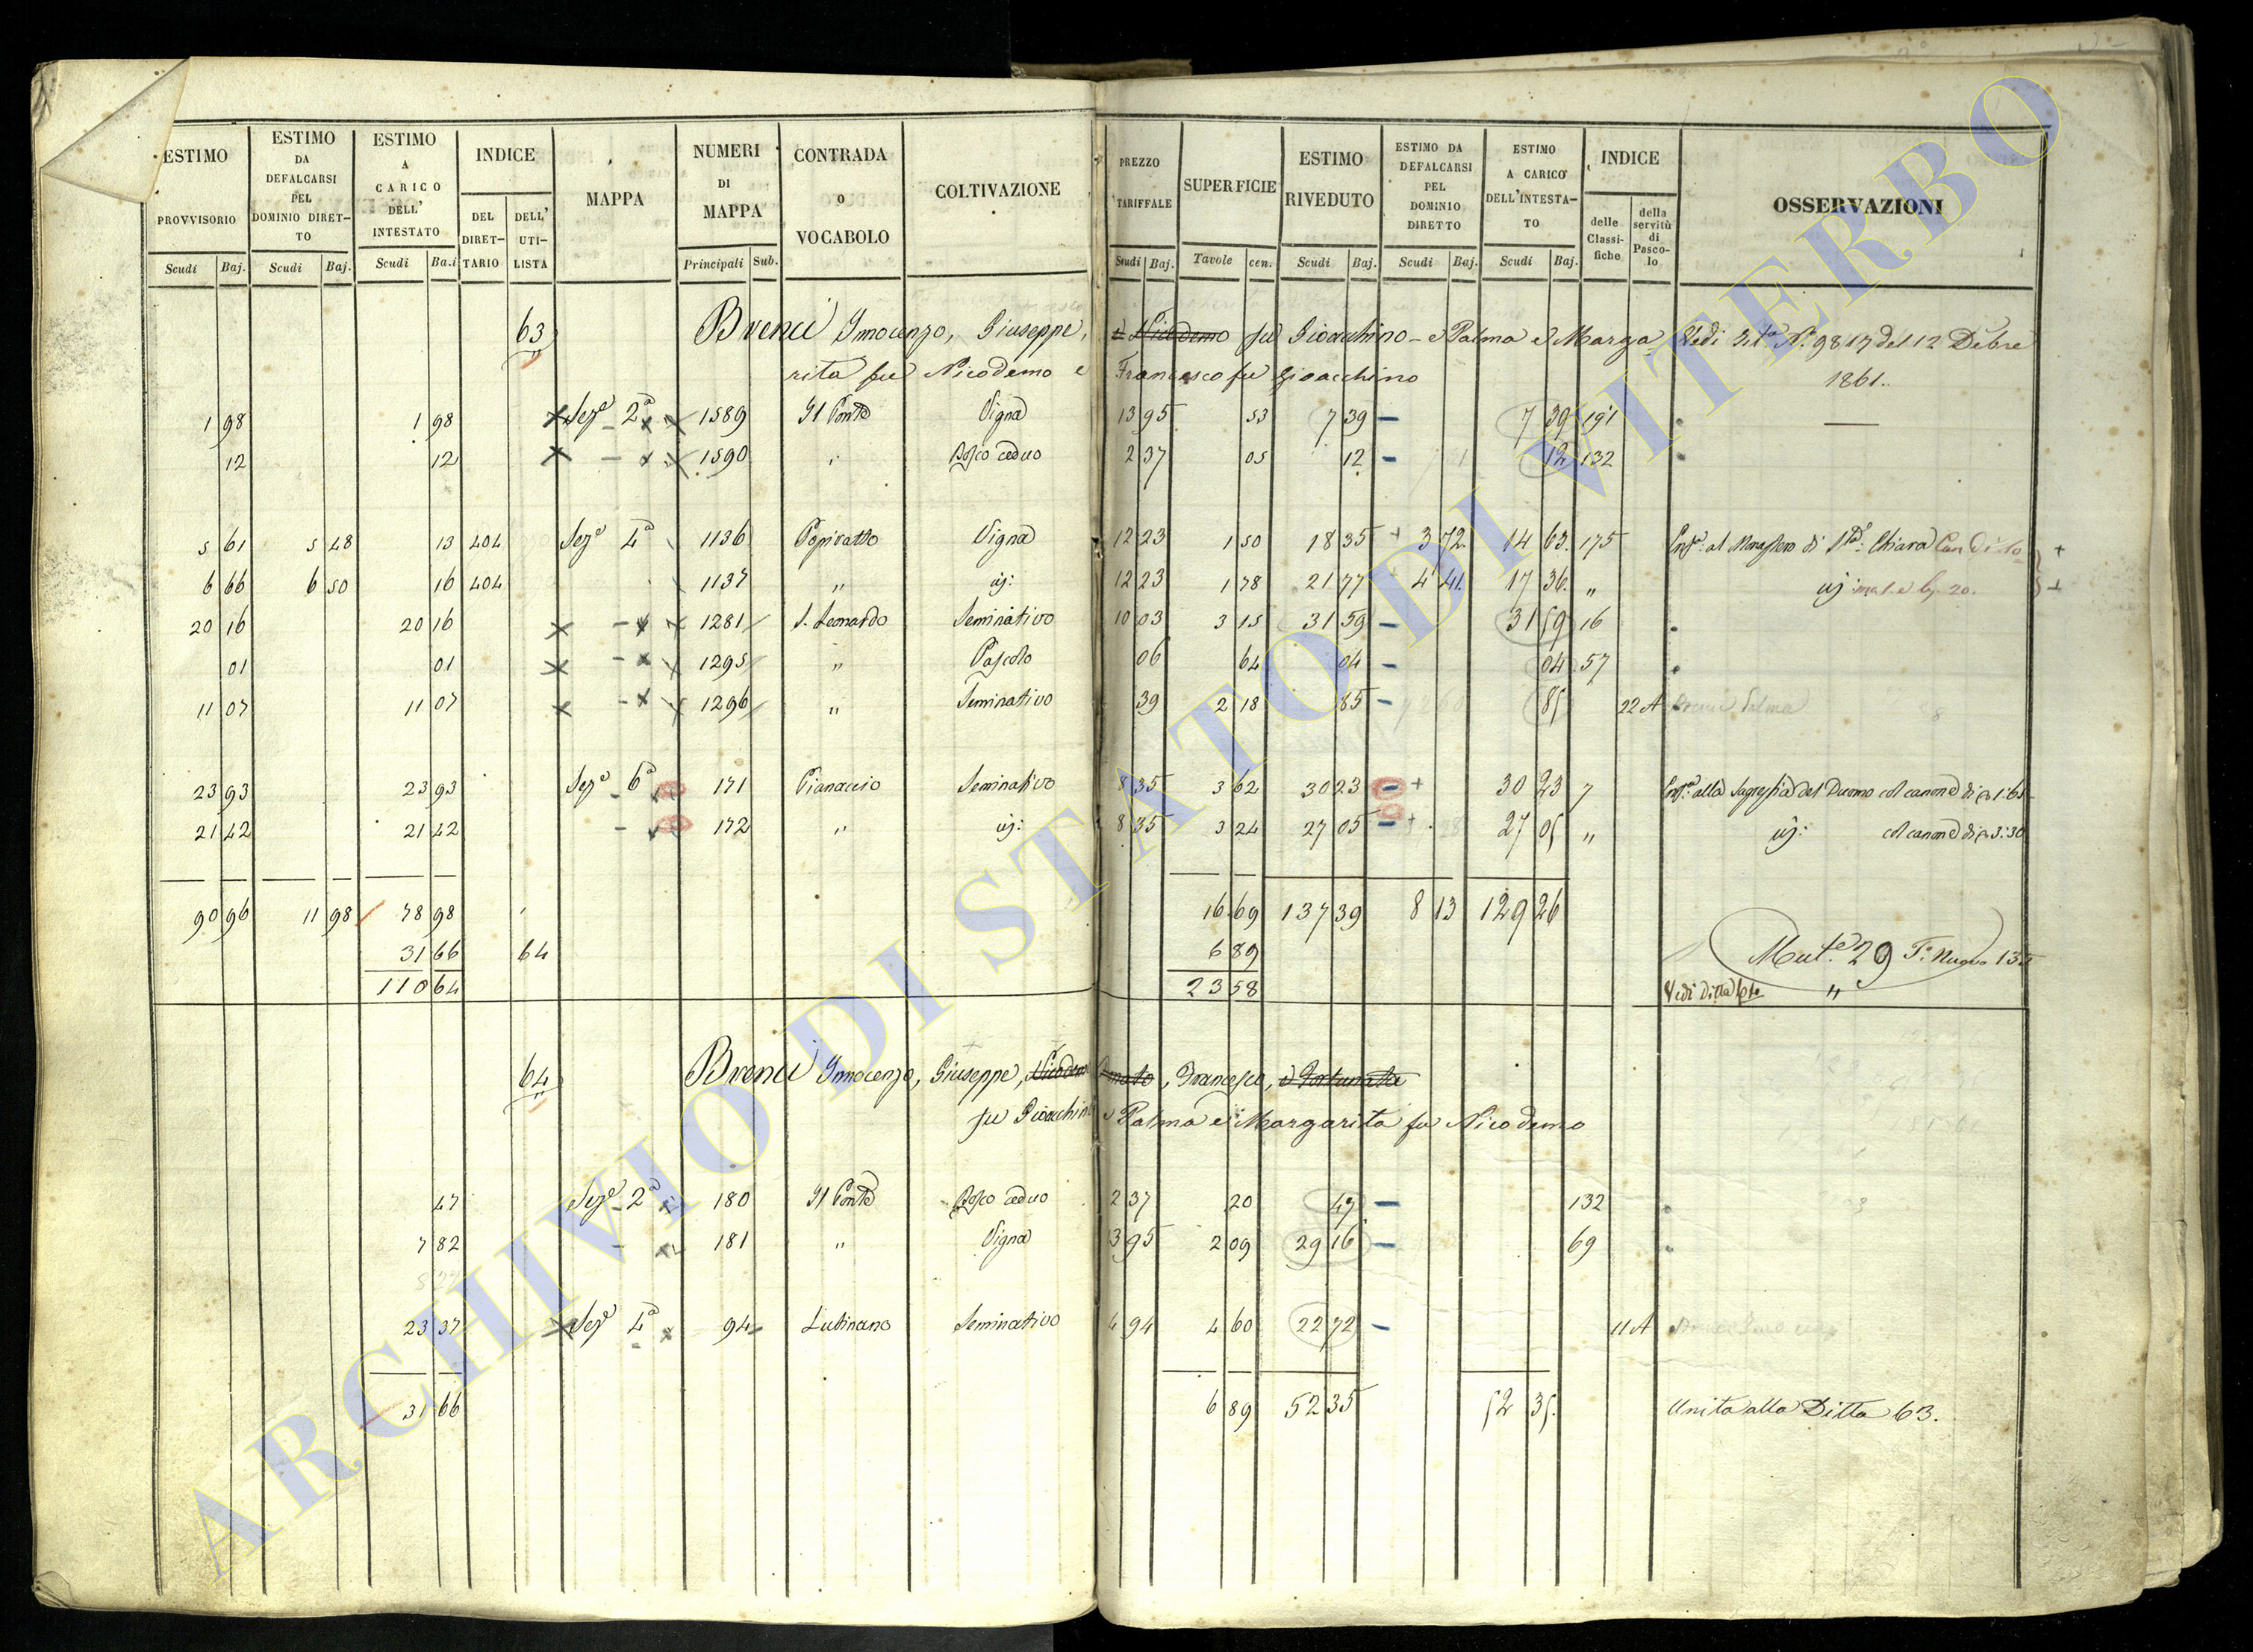 ESTIMO PROVVISORIO | ESTIMO DA DEFALCARSI PEL DOMINIO DIRETTO | ESTIMO A CARICO DELL' INTESTATO | INDICE | MAPPA | NUMERI DI MAPPA | CONTRADA O VOCABOLO | COLTIVAZIONE | PREZZO TARIFFALE | SUPERFICIE | ESTIMO RIVEDUTO | ESTIMO DA DEFALCARSI PEL DOMINIO DIRETTO | ESTIMO A CARICO DELL'INTESTATO | INDICE | OSSERVAZIONI
DEL DIRETTARIO | DELL' UTILISTA | delle Classifiche | della servitù di Pascolo
Scudi Baj. | Scudi Baj. | Scudi Ba.i | Principali Sub. | Scudi Baj. | Tavole cen. | Scudi Baj. | Scudi Baj. | Scudi Baj.
63 Brenci Innocenzo, Giuseppe, e Nicodemo fu Gioacchino - e Palma e Marga Vedi N.° 9817 del 12 Dēbre
rita fu Nicodemo e Francesco fu Gioacchino 1861.
1 98 1 98 Seze 2a 1589 Il Ponte Vigna 13 95 53 7 39 7 39 191
12 12 1590 " Bosco ceduo 2 37 05 12 12 132
5 61 5 48 13 404 Seze 4a 1136 Vigna 12 23 1 50 18 35 + 3 72 14 63 175 al Monastero di Chiara
6 66 6 50 16 404 1137 " 12 23 1 78 21 77 4 41 17 36 "
20 16 20 16 1281 S. Leonardo Seminativo 10 03 3 15 31 59 31 59 16
01 01 1295 " Pascolo 06 64 04 04 57
11 07 11 07 1296 " Seminativo 39 2 18 85 85 22 A
23 93 23 93 Seze 6a 171 Pianaccio Seminativo 8 35 3 62 30 23 + 30 23 7 alla Sagrestia del Duomo col canone di 1:65
21 42 21 42 172 " 8 35 3 24 27 05 + 27 05 " col canone di 3:30
90 96 11 98 78 98 16 69 137 39 8 13 129 26
31 66 64 6 89
110 64 23 58 Vedi Ditta "
64 Brenci Innocenzo, Giuseppe, Nicodemo, Donato, Francesco, e Fortunata
fu Gioacchino e Palma e Margarita fu Nicodemo
47 Seze 2a 180 Il Ponte Bosco ceduo 2 37 20 47 132
7 82 181 " Vigna 13 95 2 09 29 16 69
23 37 Seze 4a 94 Lubinano Seminativo 4 94 4 60 22 72 11 A
31 66 6 89 52 35 52 35 Unita alla Ditta 63.
ARCHIVIO DI STATO DI VITERBO